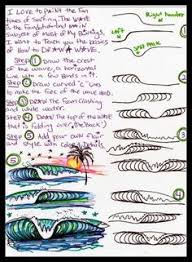 I LOVE to PAINT the FUN
times of SURFING. The WAVE
is the Foundation and Main
Subject of Most of My Paintings.
I want to teach you the basics
of How to DRAW A WAVE.
Step 1 DRAW the CREST
of the wave, a horizontal
Line with a few Bends in it.
Step 2 DRAW curved "C" lines
to make the face of the wave bend.
Step 3 DRAW the Foam Crashing
white water.
Step 4 DRAW the top of the WAVE
that is folding over (the Back)
Step 5 Add your own flair
and style with Color & Details.
Right hander
Left
Just peak
5
1
2
3
4